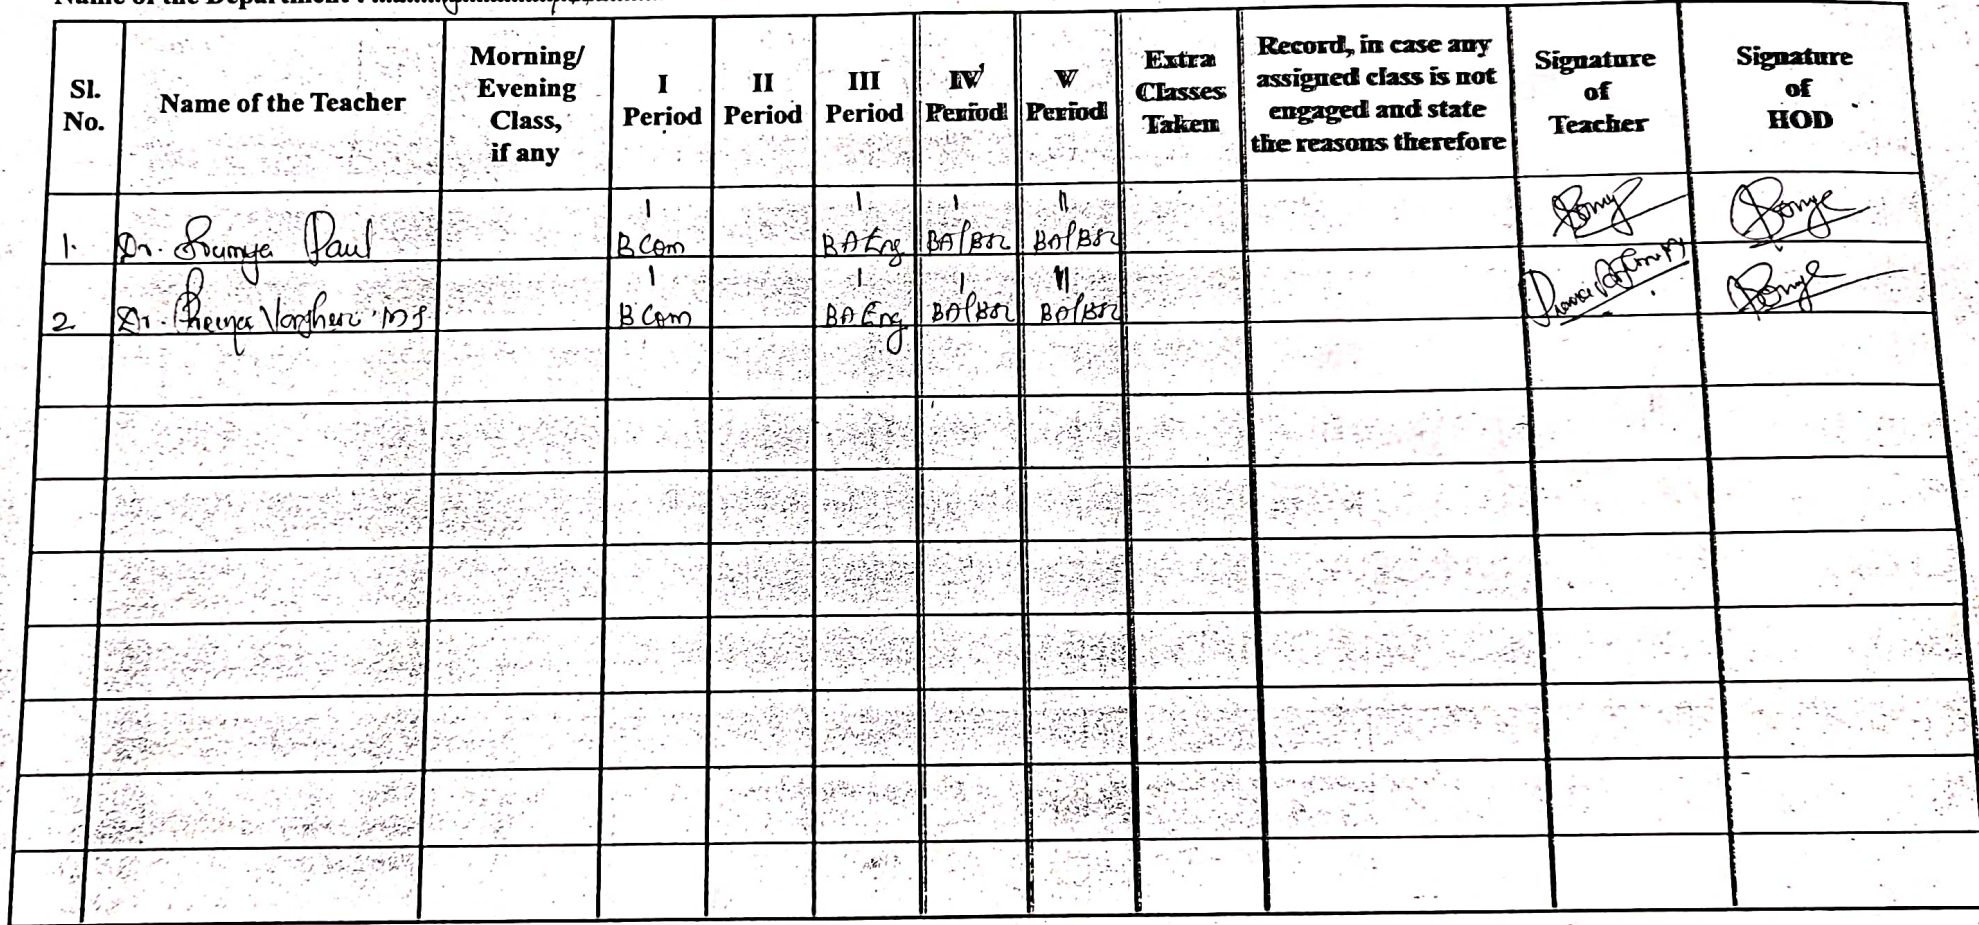 Name of the Department :
Sl. No.
Name of the Teacher
Morning/
Evening
Class,
if any
I
Period
II
Period
III
Period
IV
Period
V
Period
Extra
Classes
Taken
Record, in case any
assigned class is not
engaged and state
the reasons therefore
Signature
of
Teacher
Signature
of
HOD
1. Dr. Paul
I
B Com
I
BA Eng
I
BA/BSc
II
BA/BSc
2 Dr.
I
B Com
I
BA Eng
I
BA/BSc
II
BA/BSc